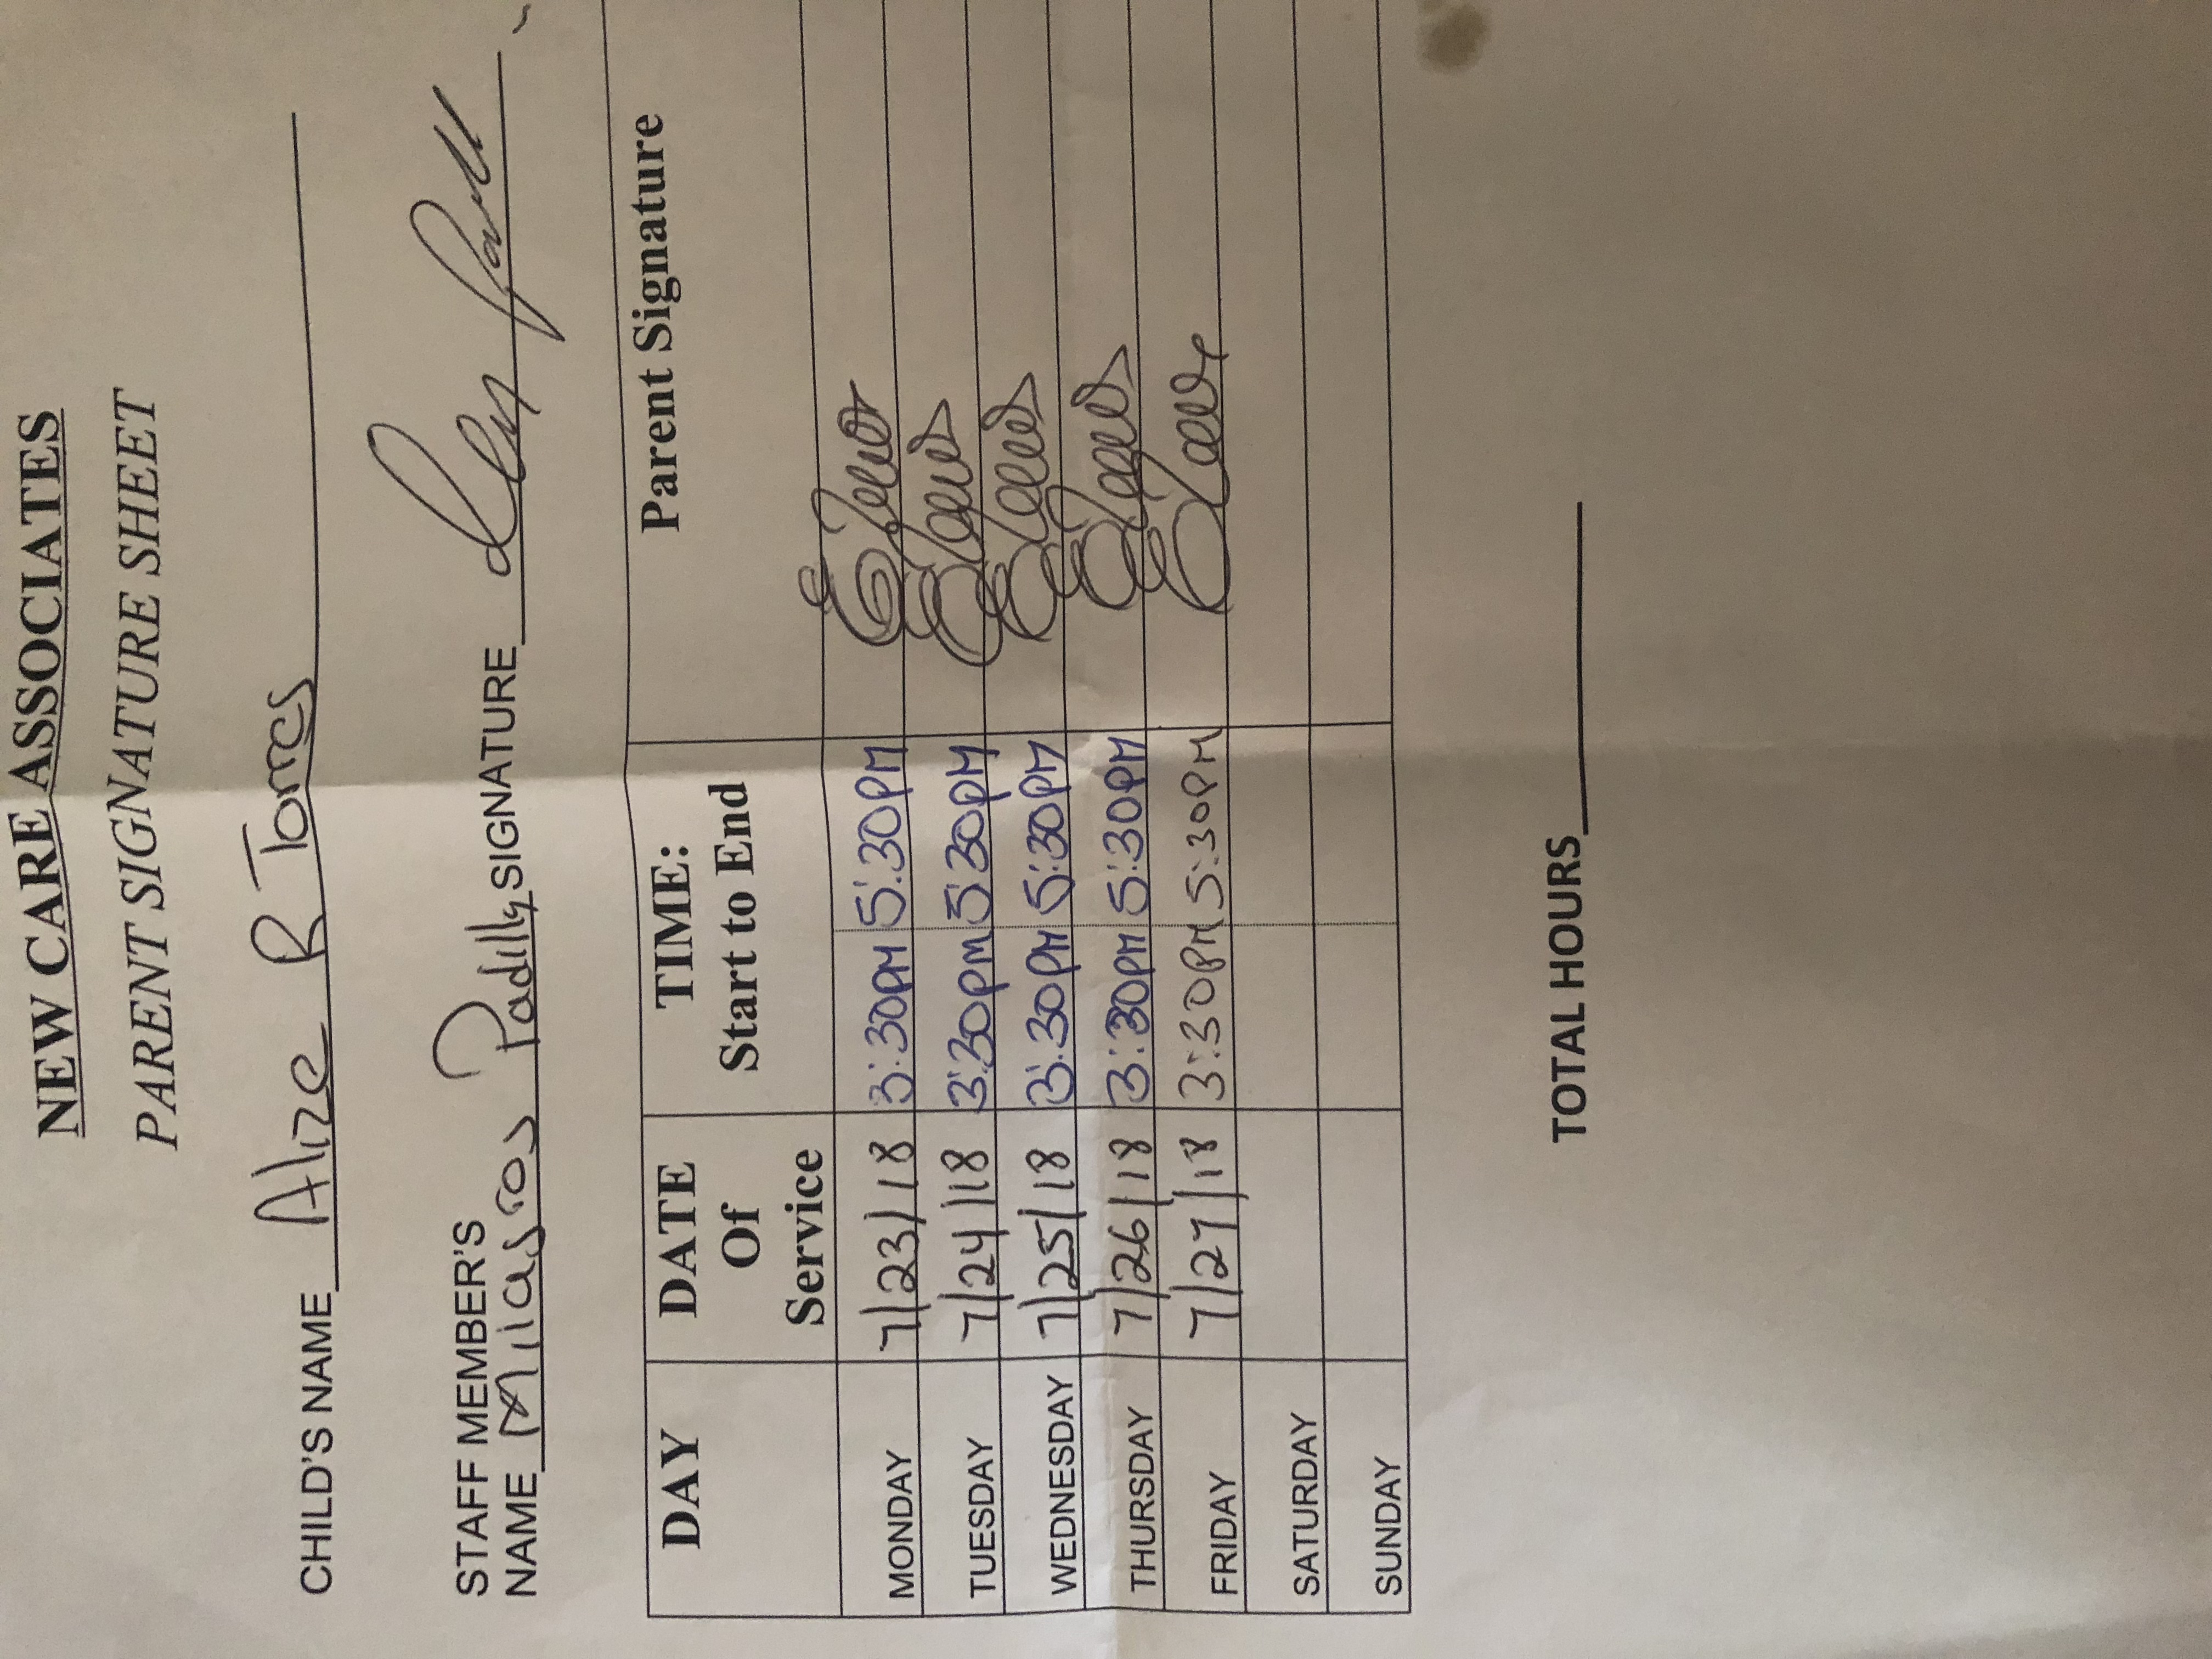 NEW CARE ASSOCIATES
PARENT SIGNATURE SHEET
CHILD'S NAME Alize R Torres
STAFF MEMBER'S
NAME Milagros Padilla SIGNATURE
DAY DATE Of Service TIME: Start to End Parent Signature
MONDAY 7/23/18 3:30PM 5:30PM
TUESDAY 7/24/18 3:30pm 5:30PM
WEDNESDAY 7/25/18 3:30PM 5:30PM
THURSDAY 7/26/18 3:30PM 5:30PM
FRIDAY 7/27/18 3:30PM 5:30PM
SATURDAY
SUNDAY
TOTAL HOURS